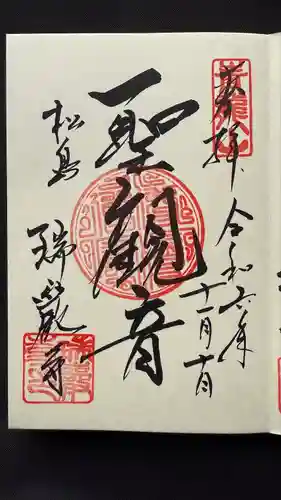 奉拝
令和六年
十一月十日
聖観音
松島
瑞巖寺